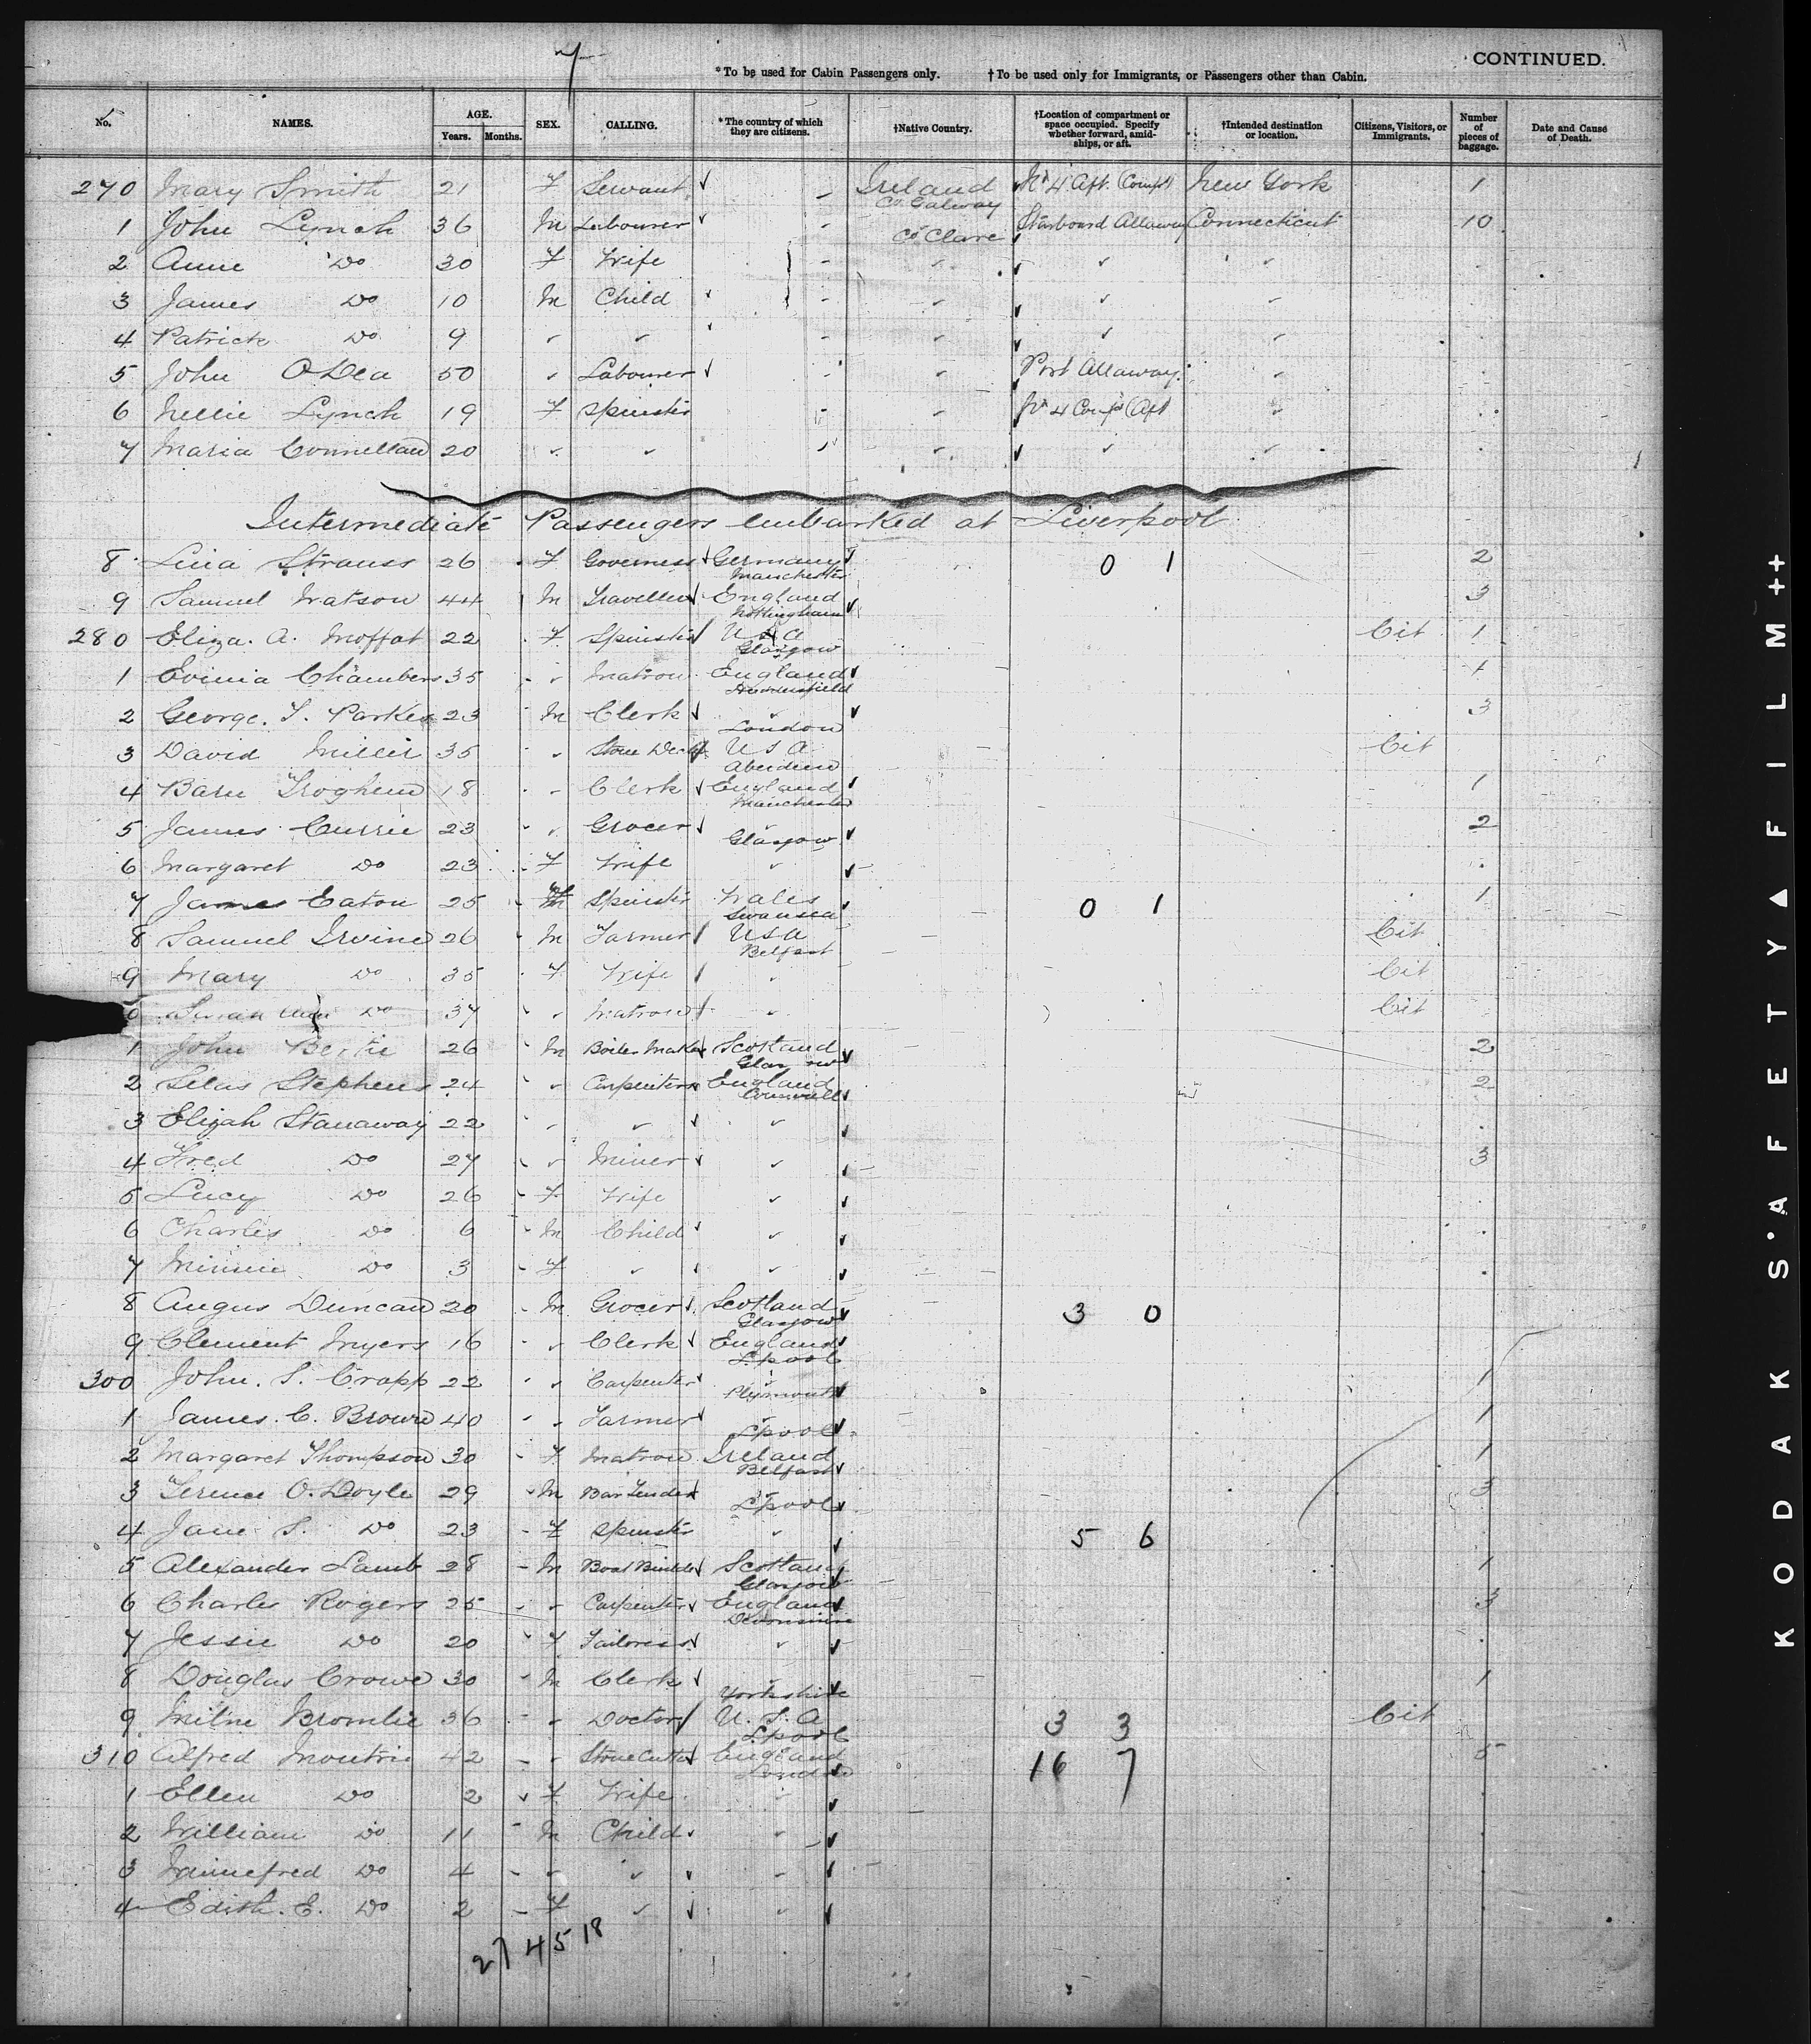 7
*To be used for Cabin Passengers only. †To be used only for Immigrants, or Passengers other than Cabin. CONTINUED.
No. NAMES. AGE. Years. Months. SEX. CALLING. *The country of which they are citizens. †Native Country. †Location of compartment or space occupied. Specify whether forward, amidships, or aft. †Intended destination or location. Citizens, Visitors, or Immigrants. Number of pieces of baggage. Date and Cause of Death.
270 Mary Smith 21 F Servant Ireland Co. Galway No 4 Aft. Compt New York 1
1 John Lynch 36 M Labourer Co Clare Starboard Allaway Connecticut 10
2 Anne Do 30 F Wife
3 James Do 10 M Child
4 Patrick Do 9
5 John O'Dea 50 Labourer Port Allaway
6 Nellie Lynch 19 F Spinster No 4 Compt Aft
7 Maria Connellan 20
Intermediate Passengers embarked at Liverpool
8 Lina Strauss 26 F Governess Germany Manchester 0 1 2
9 Samuel Watson 44 M Traveller England Nottingham 3
280 Eliza. A. Moffat 22 F Spinster U S A Glasgow Cit 1
1 Evinia Chambers 35 Matron England 1
2 George. T. Parker 23 M Clerk London 3
3 David Miller 35 Stone U S A Aberdeen Cit
4 18 Clerk England Manchester 1
5 James Currie 23 Grocer Glasgow 2
6 Margaret Do 23 F Wife
7 James Eaton 25 Spinster Wales Swansea 0 1 1
8 Samuel Irvine 26 M Farmer USA Belfast Cit
9 Mary Do 35 F Wife Cit
0 Susan Do 37 Matron Cit
1 John Bertie 26 M Boiler Maker Scotland Glasgow 2
2 Silas Stephens 24 Carpenter England Cornwall 2
3 Elijah Stanaway 22
4 Fred Do 27 Miner 3
5 Lucy Do 26 F Wife
6 Charles Do 6 M Child
7 Minnie Do 3 F
8 Angus Duncan 20 M Grocer Scotland Glasgow 3 0
9 Clement Myers 16 Clerk England Lpool
300 John. S. Crapp 22 Carpenter Plymouth 1
1 James. C. Brown 40 Farmer Lpool 1
2 Margaret Thompson 30 F Matron Ireland Belfast 1
3 Terence O. Doyle 29 M Bar Tender Lpool 3
4 Jane S. Do 23 F Spinster 5 6
5 Alexander Lamb 28 M Boat Builder Scotland Glasgow 1
6 Charles Rogers 25 Carpenter England Devonshire 3
7 Jessie Do 20 F Tailoress
8 Douglas Crowe 30 M Clerk Yorkshire 1
9 Milne Bromlie 36 Doctor U. S. A Lpool 3 3 Cit
310 Alfred Moutrie 42 Stone Cutter England London 16 7 5
1 Ellen Do 2 F Wife
2 William Do 11 M Child
3 Winnefred Do 4
4 Edith. E. Do 2 F
27 45 18
KODAK SAFETY FILM ++